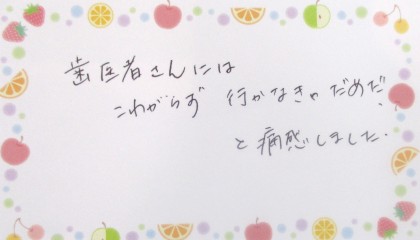 歯医者さんには
これがらず 行かなきゃ だめだ、
と 痛感しました.